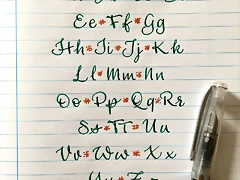 Ee*Ff*Gg
Hh*Ii*Jj*Kk
Ll*Mm*Nn
Oo*Pp*Qq*Rr
Ss*Tt*Uu
Vv*Ww*Xx
Yy*Zz